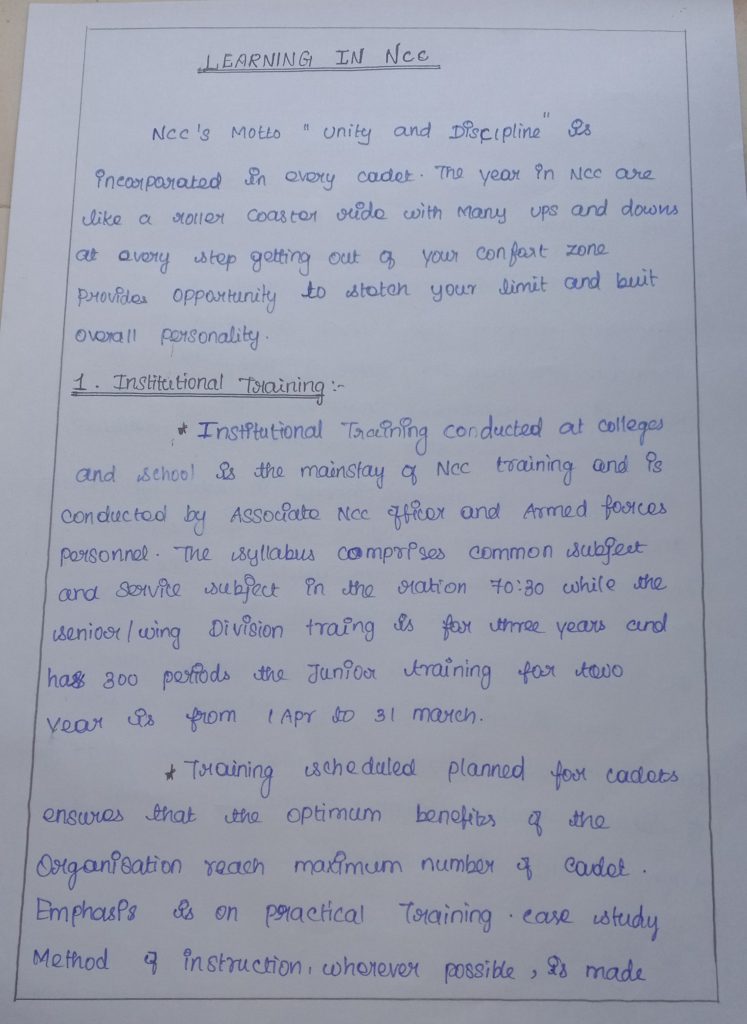 LEARNING IN Ncc
Ncc's Motto "unity and Discipline" is
incorparated in every cadet. The year in Ncc are
like a roller coaster ride with Many ups and downs
at every step getting out of your confart zone
provides opportunity to stotch your limit and buit
overall personality.
1. Institutional Training:-
* Institutional Training conducted at colleges
and school is the mainstay of Ncc training and is
conducted by Associate Ncc officer and Armed forces
personnel. The syllabus comprises common subject
and Service subject in the ration 70:30 while the
senior/wing Division traing is for three years and
has 300 periods the Junior training for two
year is from 1 Apr to 31 march.
* Training scheduled planned for cadets
ensures that the optimum benefits of the
Organisation reach maximum number of cadet.
Emphasis is on practical Training. case study
Method of instruction, wherever possible, is made